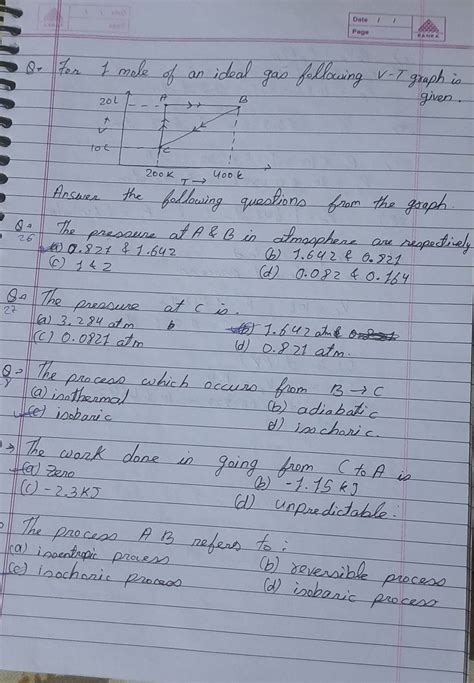 Date / /
Page
Q→ For 1 mole of an ideal gas following V-T graph is
given.
20L A B
V
10L C
200K T→ 400k
Answer the following questions from the graph.
Q→ The pressure at A & B in atmosphere are respectively
26 (a) 0.821 & 1.642 (b) 1.642 & 0.821
(c) 1 & 2 (d) 0.082 & 0.164
Q→ The pressure at C is.
27 (a) 3.284 atm (b) 1.642 atm
(c) 0.0821 atm (d) 0.821 atm.
Q→ The process which occurs from B→C
8 (a) isothermal (b) adiabatic
(c) isobaric d) isochoric.
→ The work done in going from C to A is
(a) zero (b) -1.15 kJ
(c) -2.3 KJ (d) unpredictable:
The process AB refers to:
(a) isoentropic process (b) reversible process
(c) isochoric process (d) isobaric process